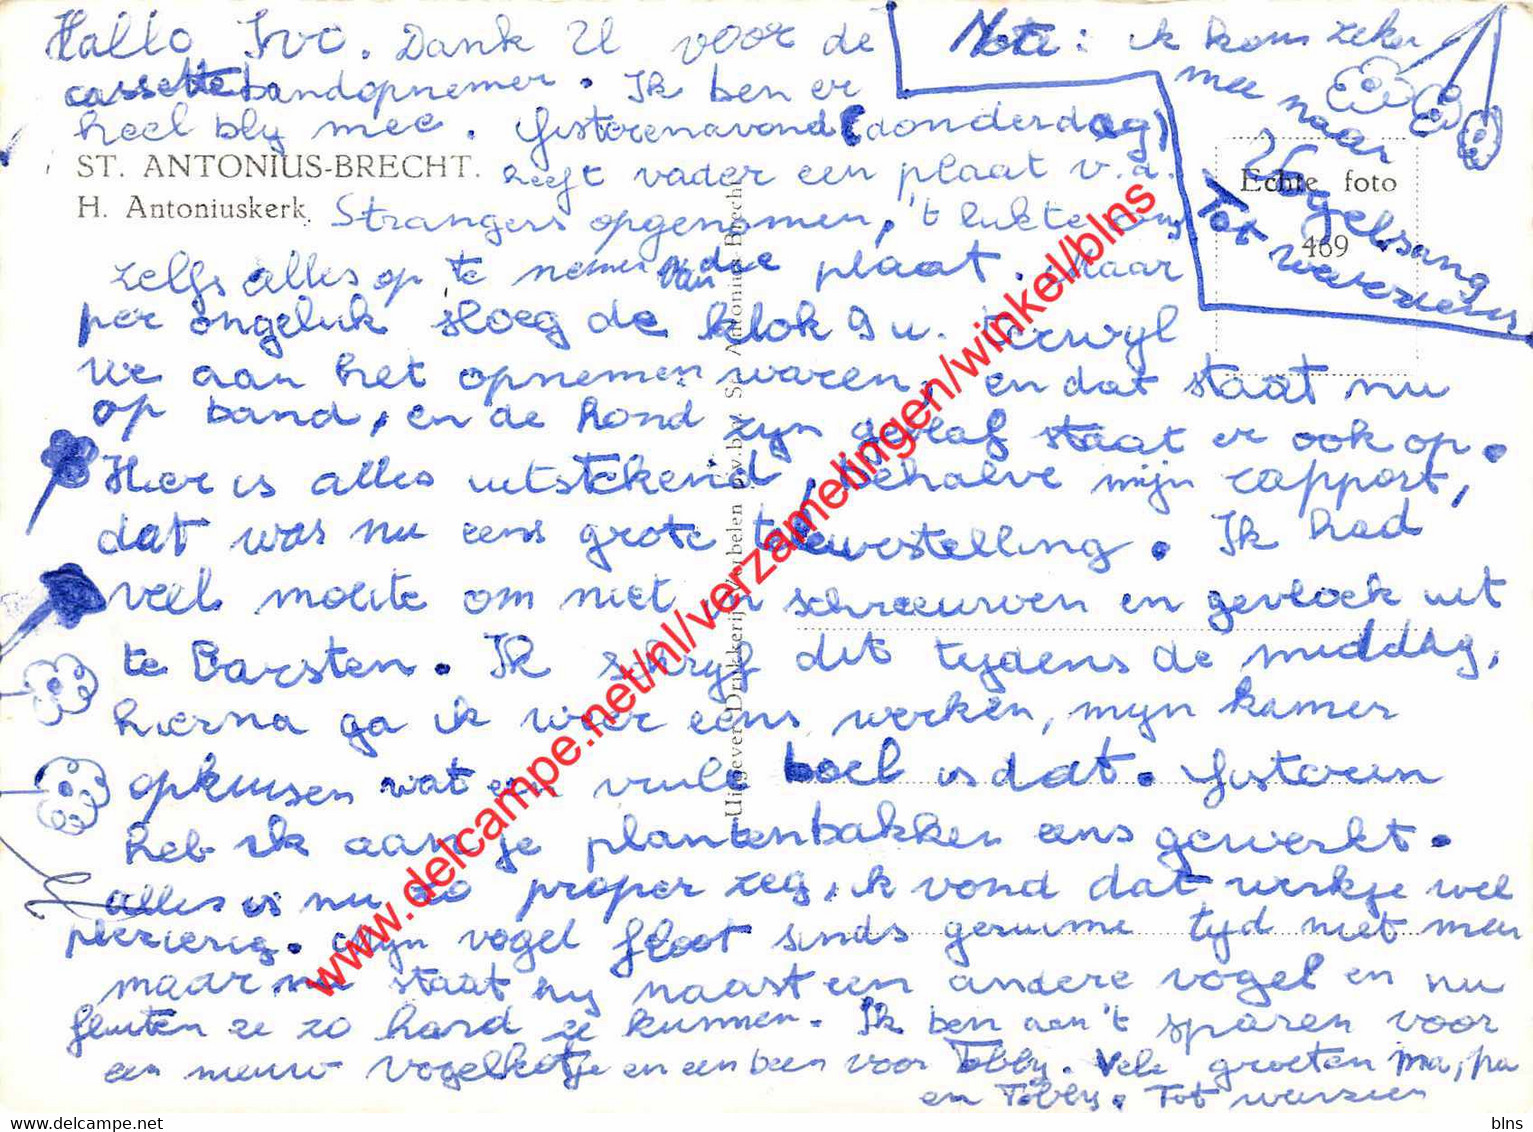 Hallo Ivo. Dank U voor de
cassettebandopnemer. Ik ben er
heel bly mee. Gisterenavond (donderdag)
ST. ANTONIUS-BRECHT.
H. Antoniuskerk.
heeft vader een plaat v.d.
Strangers opgenomen, 't lukte om
zelfs alles op te nemen van die plaat. Maar
per ongeluk sloeg de klok 9 u. terwyl
we aan het opnemen waren, en dat staat nu
op band, en de hond zyn geblaf staat er ook op.
Hier is alles uitstekend, behalve mijn rapport,
dat was nu eens grote teleurstelling. Ik had
veel moeite om niet in schreeuwen en gevloek uit
te barsten. Ik schryf dit tydens de middag,
hierna ga ik weer eens werken, myn kamer
opkuisen wat een vuile boel is dat. Gisteren
heb ik aan je plantenbakken eens gewerkt.
alles is nu zo proper zeg, ik vond dat werkje wel
plezierig. Myn vogel floot sinds geruime tyd niet meer
maar nu staat hy naast een andere vogel en nu
fluiten ze zo hard ze kunnen. Ik ben aan 't sparen voor
een nieuw vogelkotje en een been voor Tobby. Vele groeten ma, pa
en Tobby. Tot weerzien
Note: ik kom zeker
mee naar
Vogelsang
Tot weerziens
Echte foto
469
Uitgever Drukkerij Verbelen p.v.b.a. St. Antonius-Brecht
www.delcampe.net/nl/verzamelingen/winkel/blns
blns